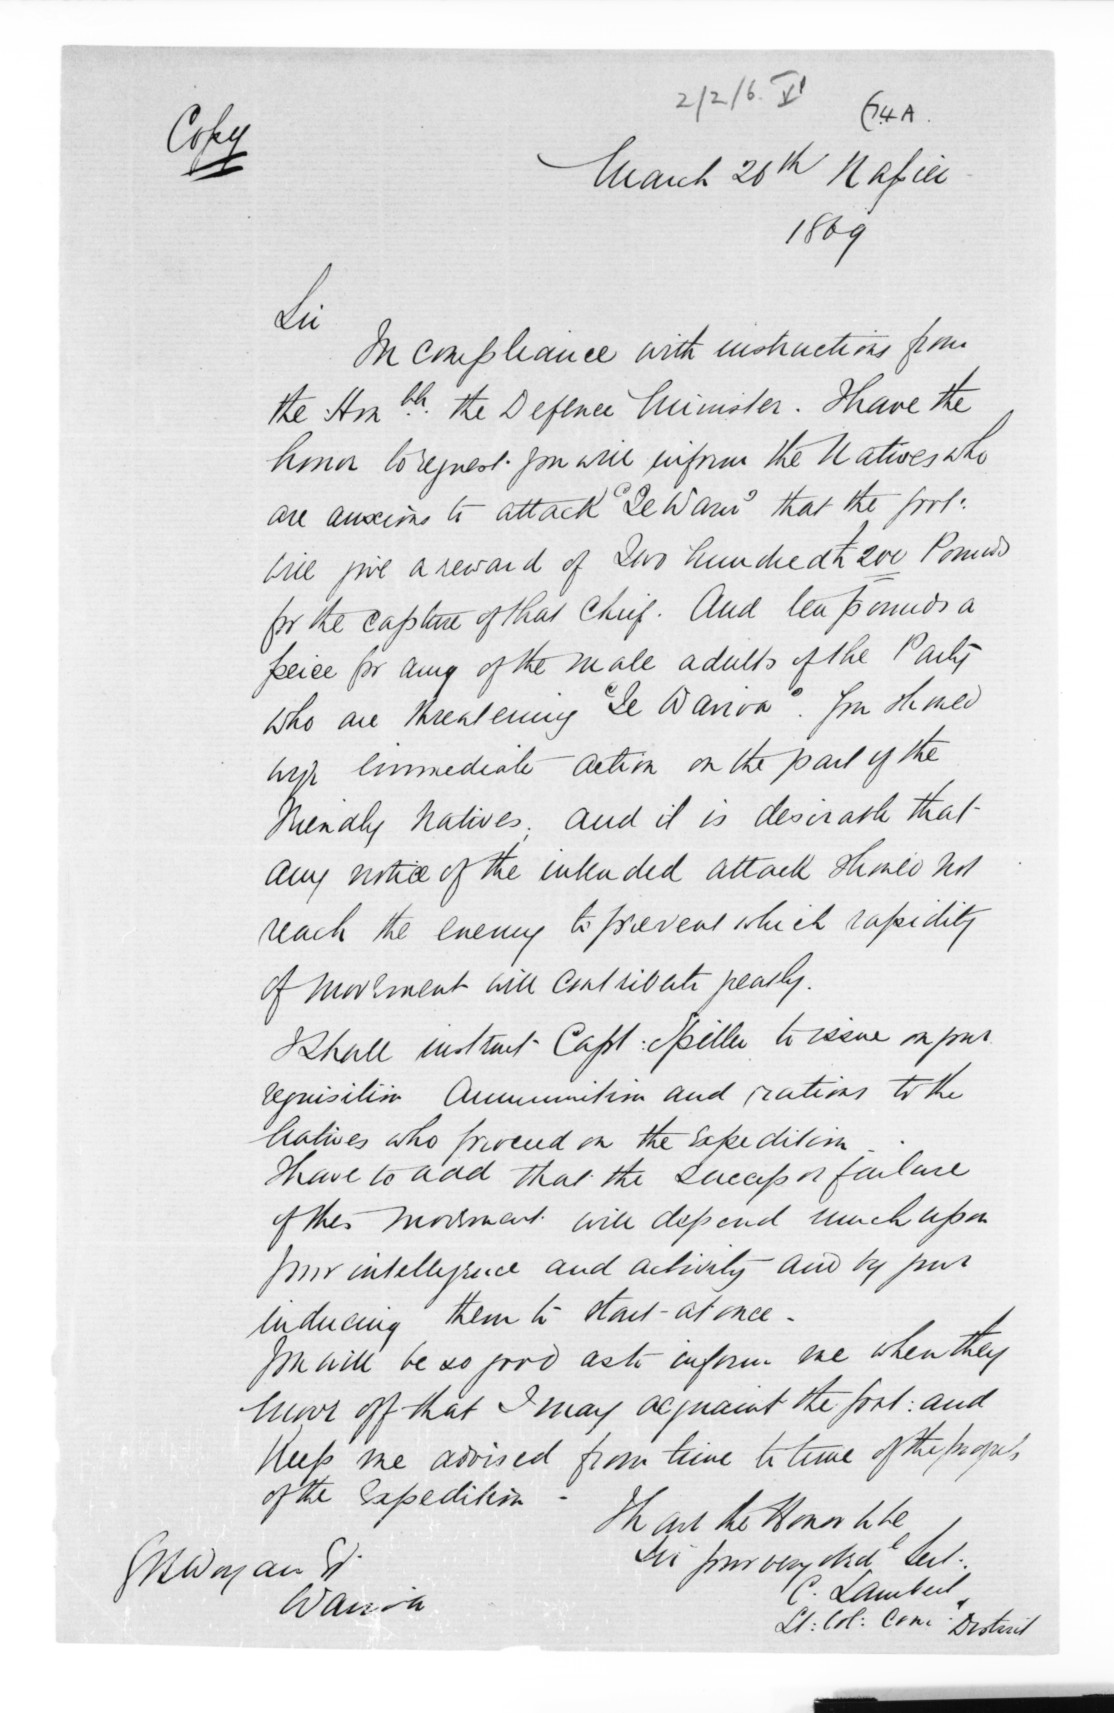 2/2/6. VI
74A.
Copy
March 20th Napier
1869
Sir
In compliance with instructions from
the Honble. the Defence Minister. I have the
honor to request you will inform the Natives who
are anxious to attack "Te Waru" that the Govt:
will give a reward of Two hundred £200 Pounds
for the capture of that Chief. And ten pounds a
peice for any of the male adults of the Party
who are threatening "Te Wairoa". You should
urge immediate action on the part of the
Friendly Natives, and it is desirable that
any notice of the intended attack should not
reach the enemy to prevent which rapidity
of movement will contribute greatly.
I shall instruct Capt: Spiller to issue on your
requisition Ammunition and rations to the
Natives who proceed on the Expedition.
I have to add that the success or failure
of this movement will depend much upon
your intelligence and activity and by your
inducing them to start at once.
You will be so good as to inform me when they
move off that I may acquaint the Govt: and
Keep me advised from time to time of the progress
of the Expedition -
I have the Honor to be
Sir your very obedt Servt.
C. Lambert
Lt: Col: Comg District
Worgan Esqr
Wairoa